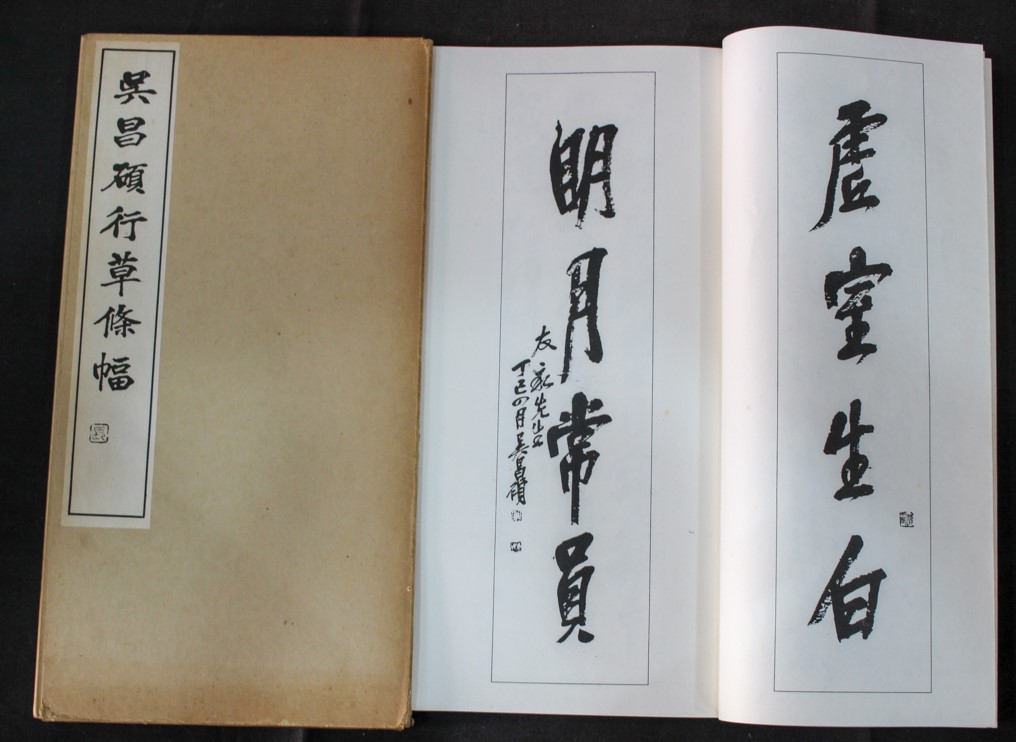 吳昌碩行草條幅
虛室生白
明月常員
友永先生
丁巳四月吳昌碩